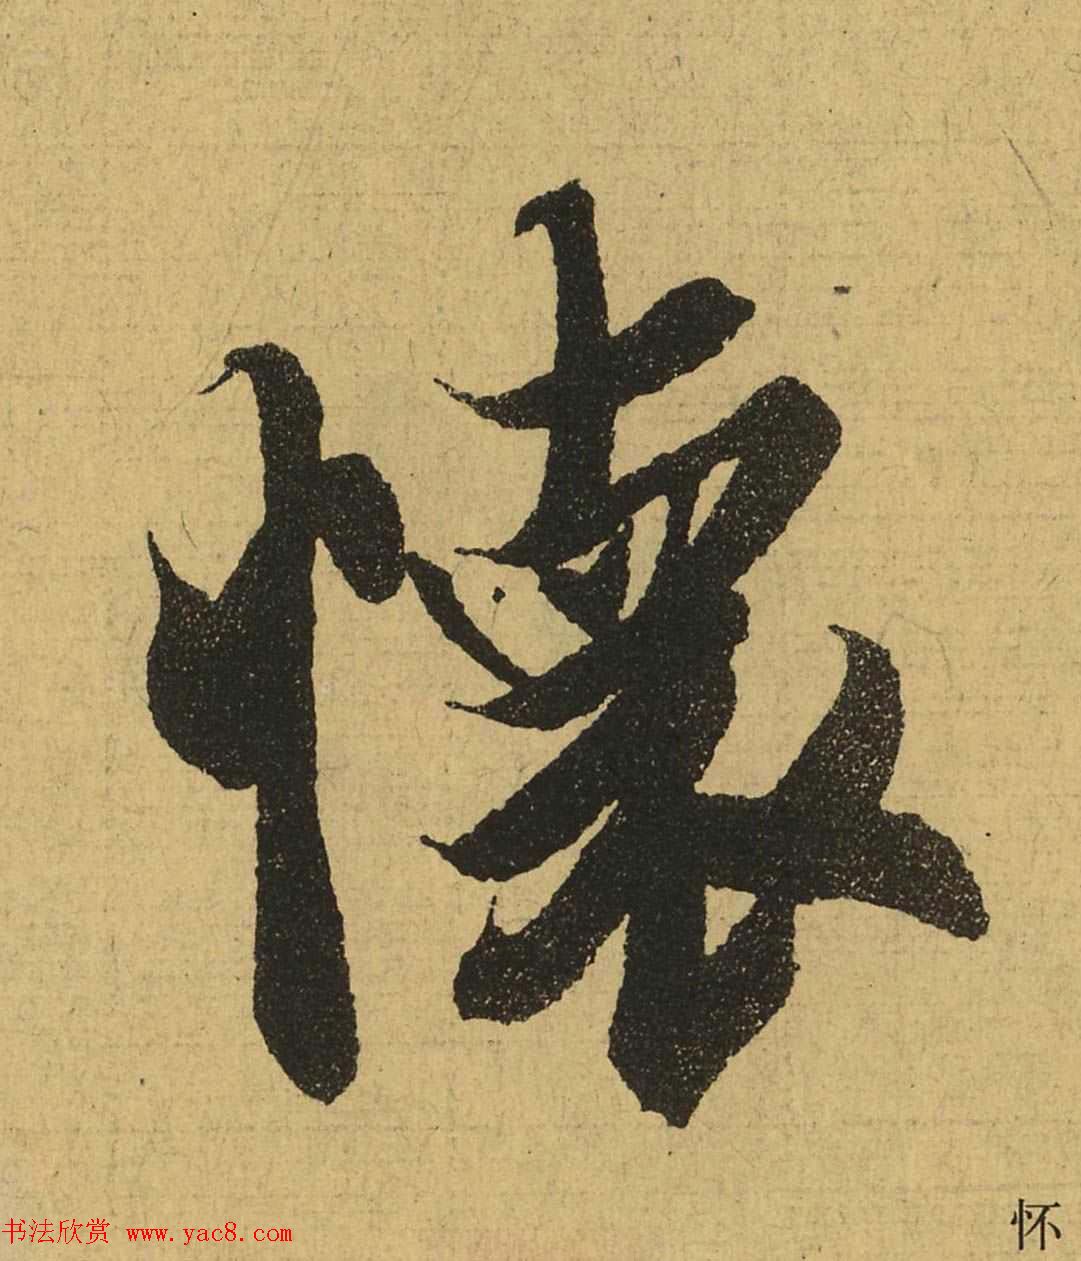 懷
书法欣赏 www.yac8.com
怀